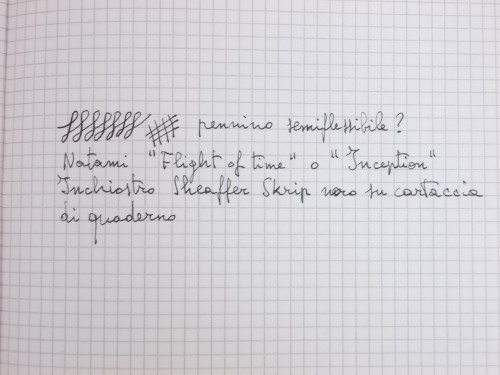 pennino semiflessibile?
Natami "Flight of time" o "Inception"
Inchiostro Sheaffer Skrip nero su cartaccia
di quaderno